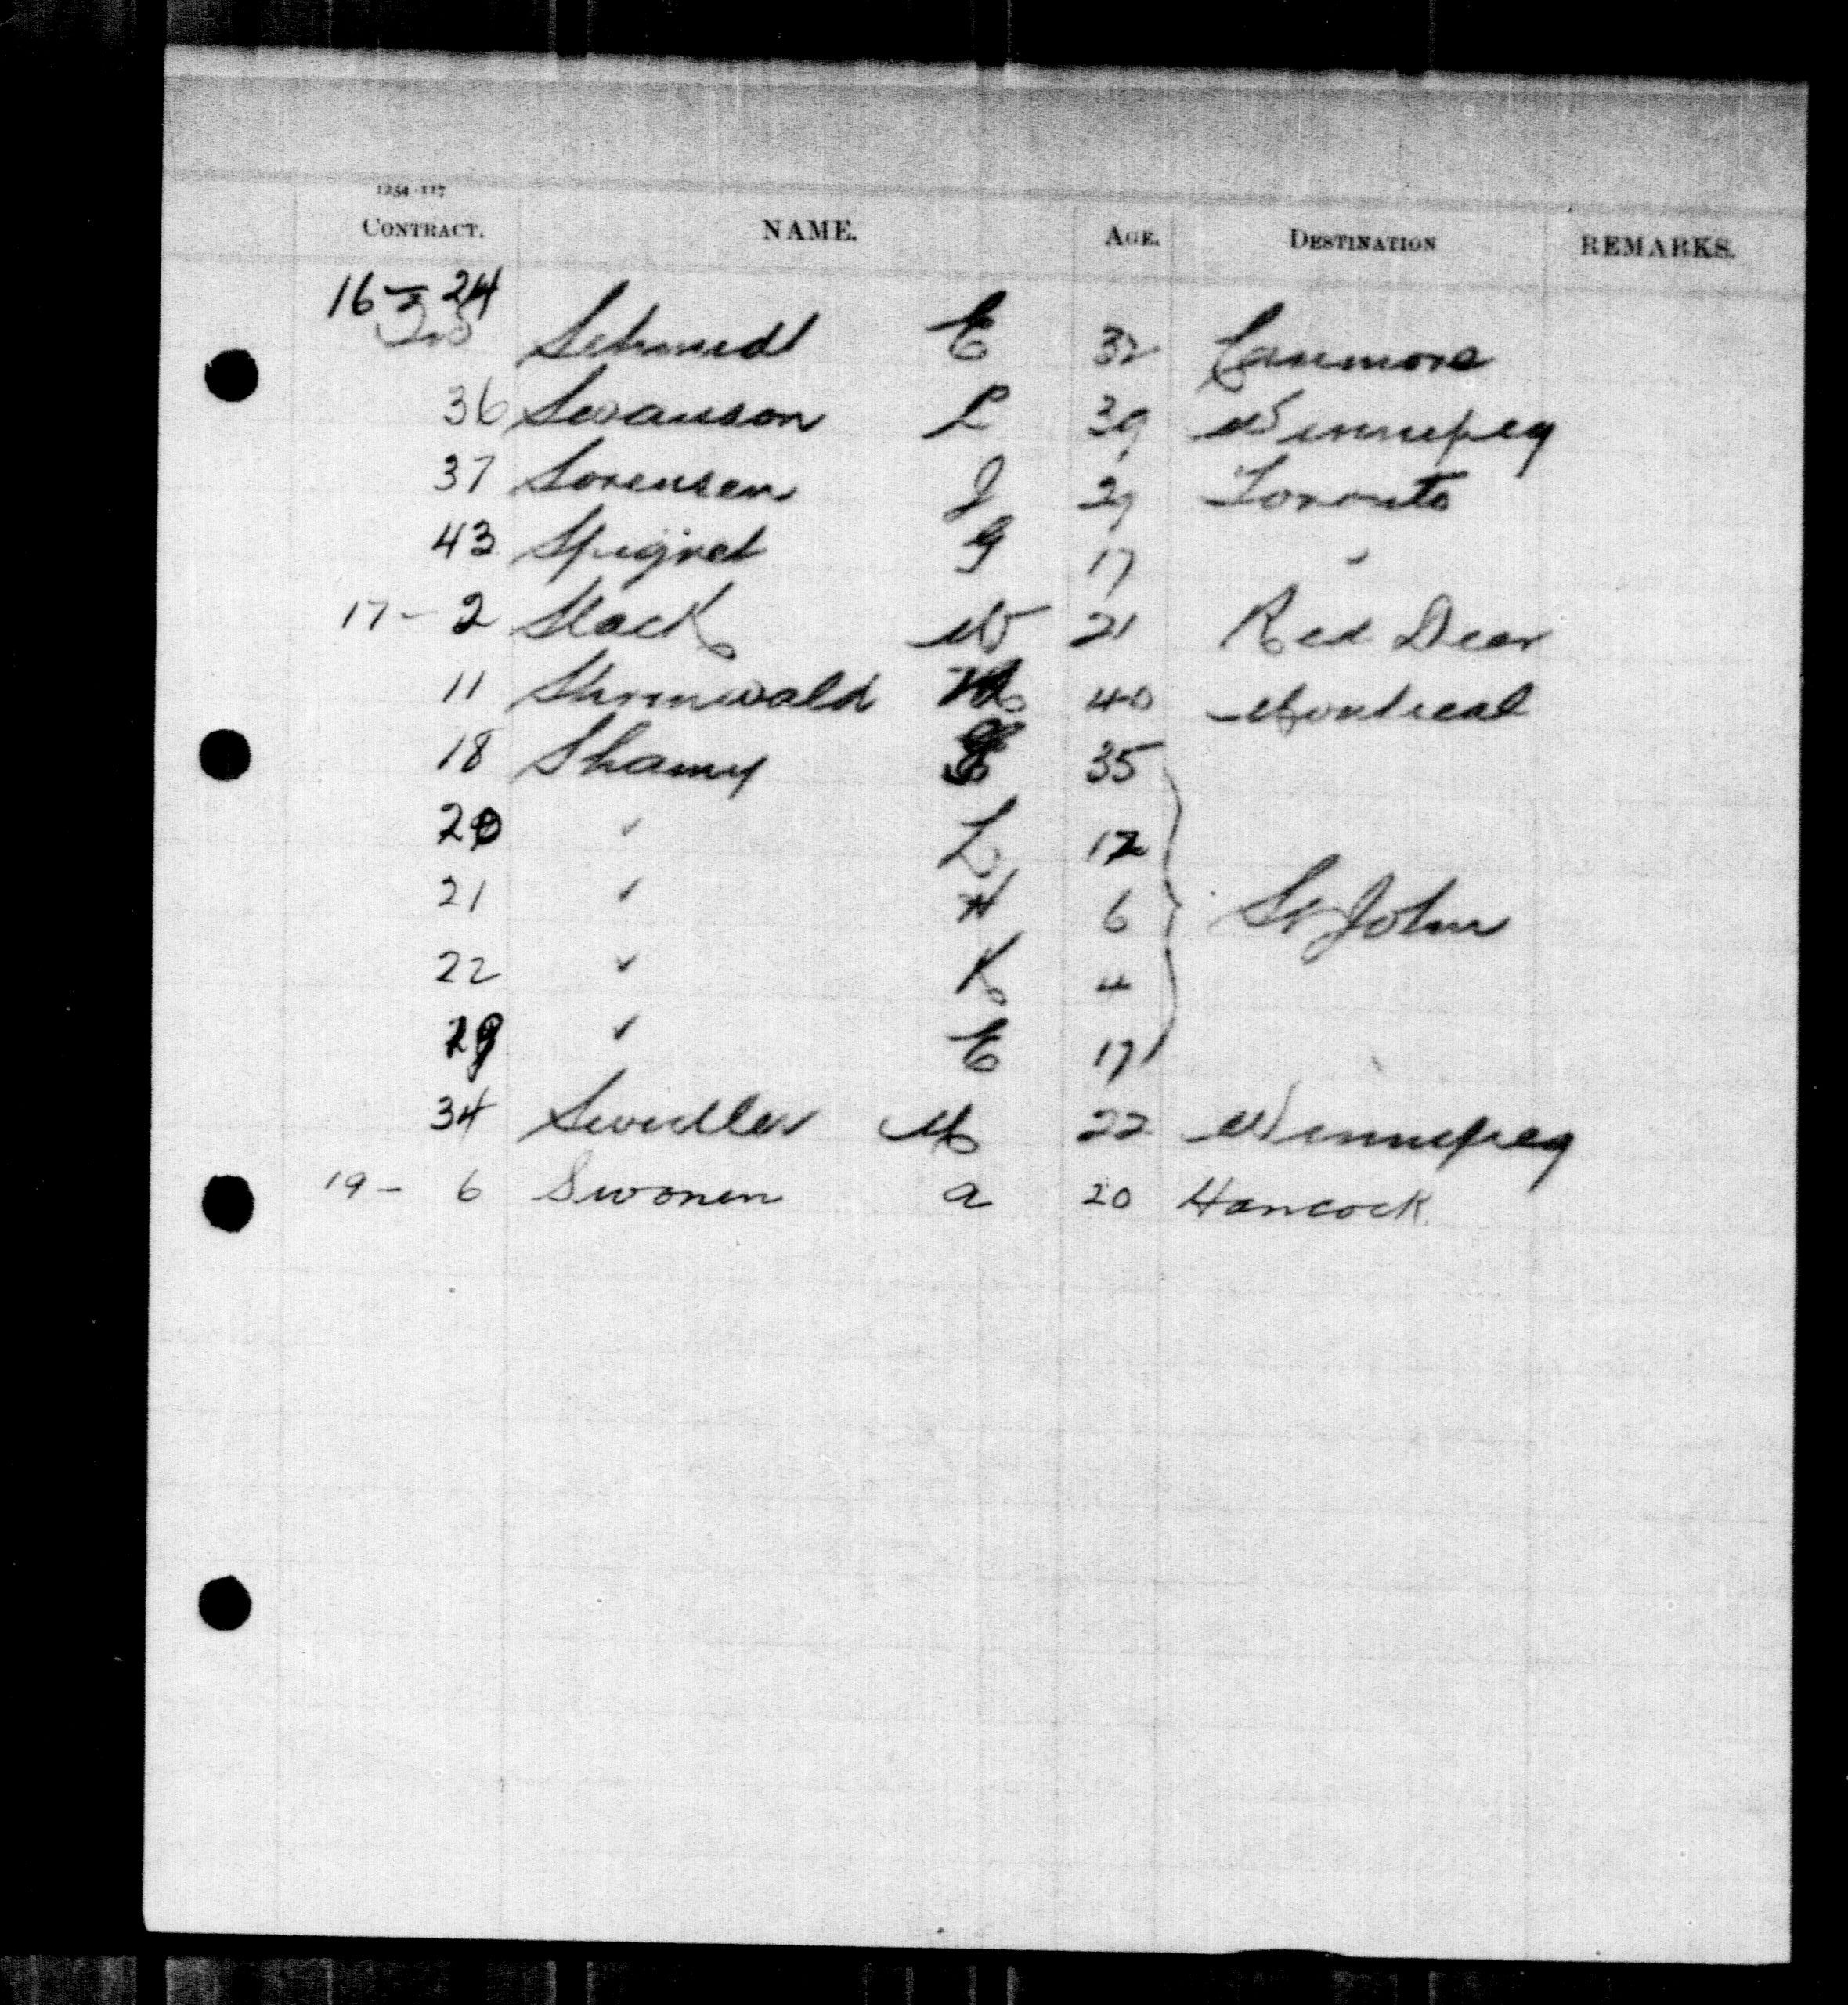 1254-117
CONTRACT. NAME. AGE. DESTINATION REMARKS.
16-24
Schmidt E 32 Canmore
36 Swanson L 39 Winnipeg
37 Sorensen J 29 Toronto
43 G 17 "
17-2 Slack W 21 Red Deer
11 40 Montreal
18 Shamy 35
20 " L 12
21 " H 6 St John
22 " K 4
29 " E 17
34 Swidler M 22 Winnipeg
19-6 Swonen A 20 Hancock